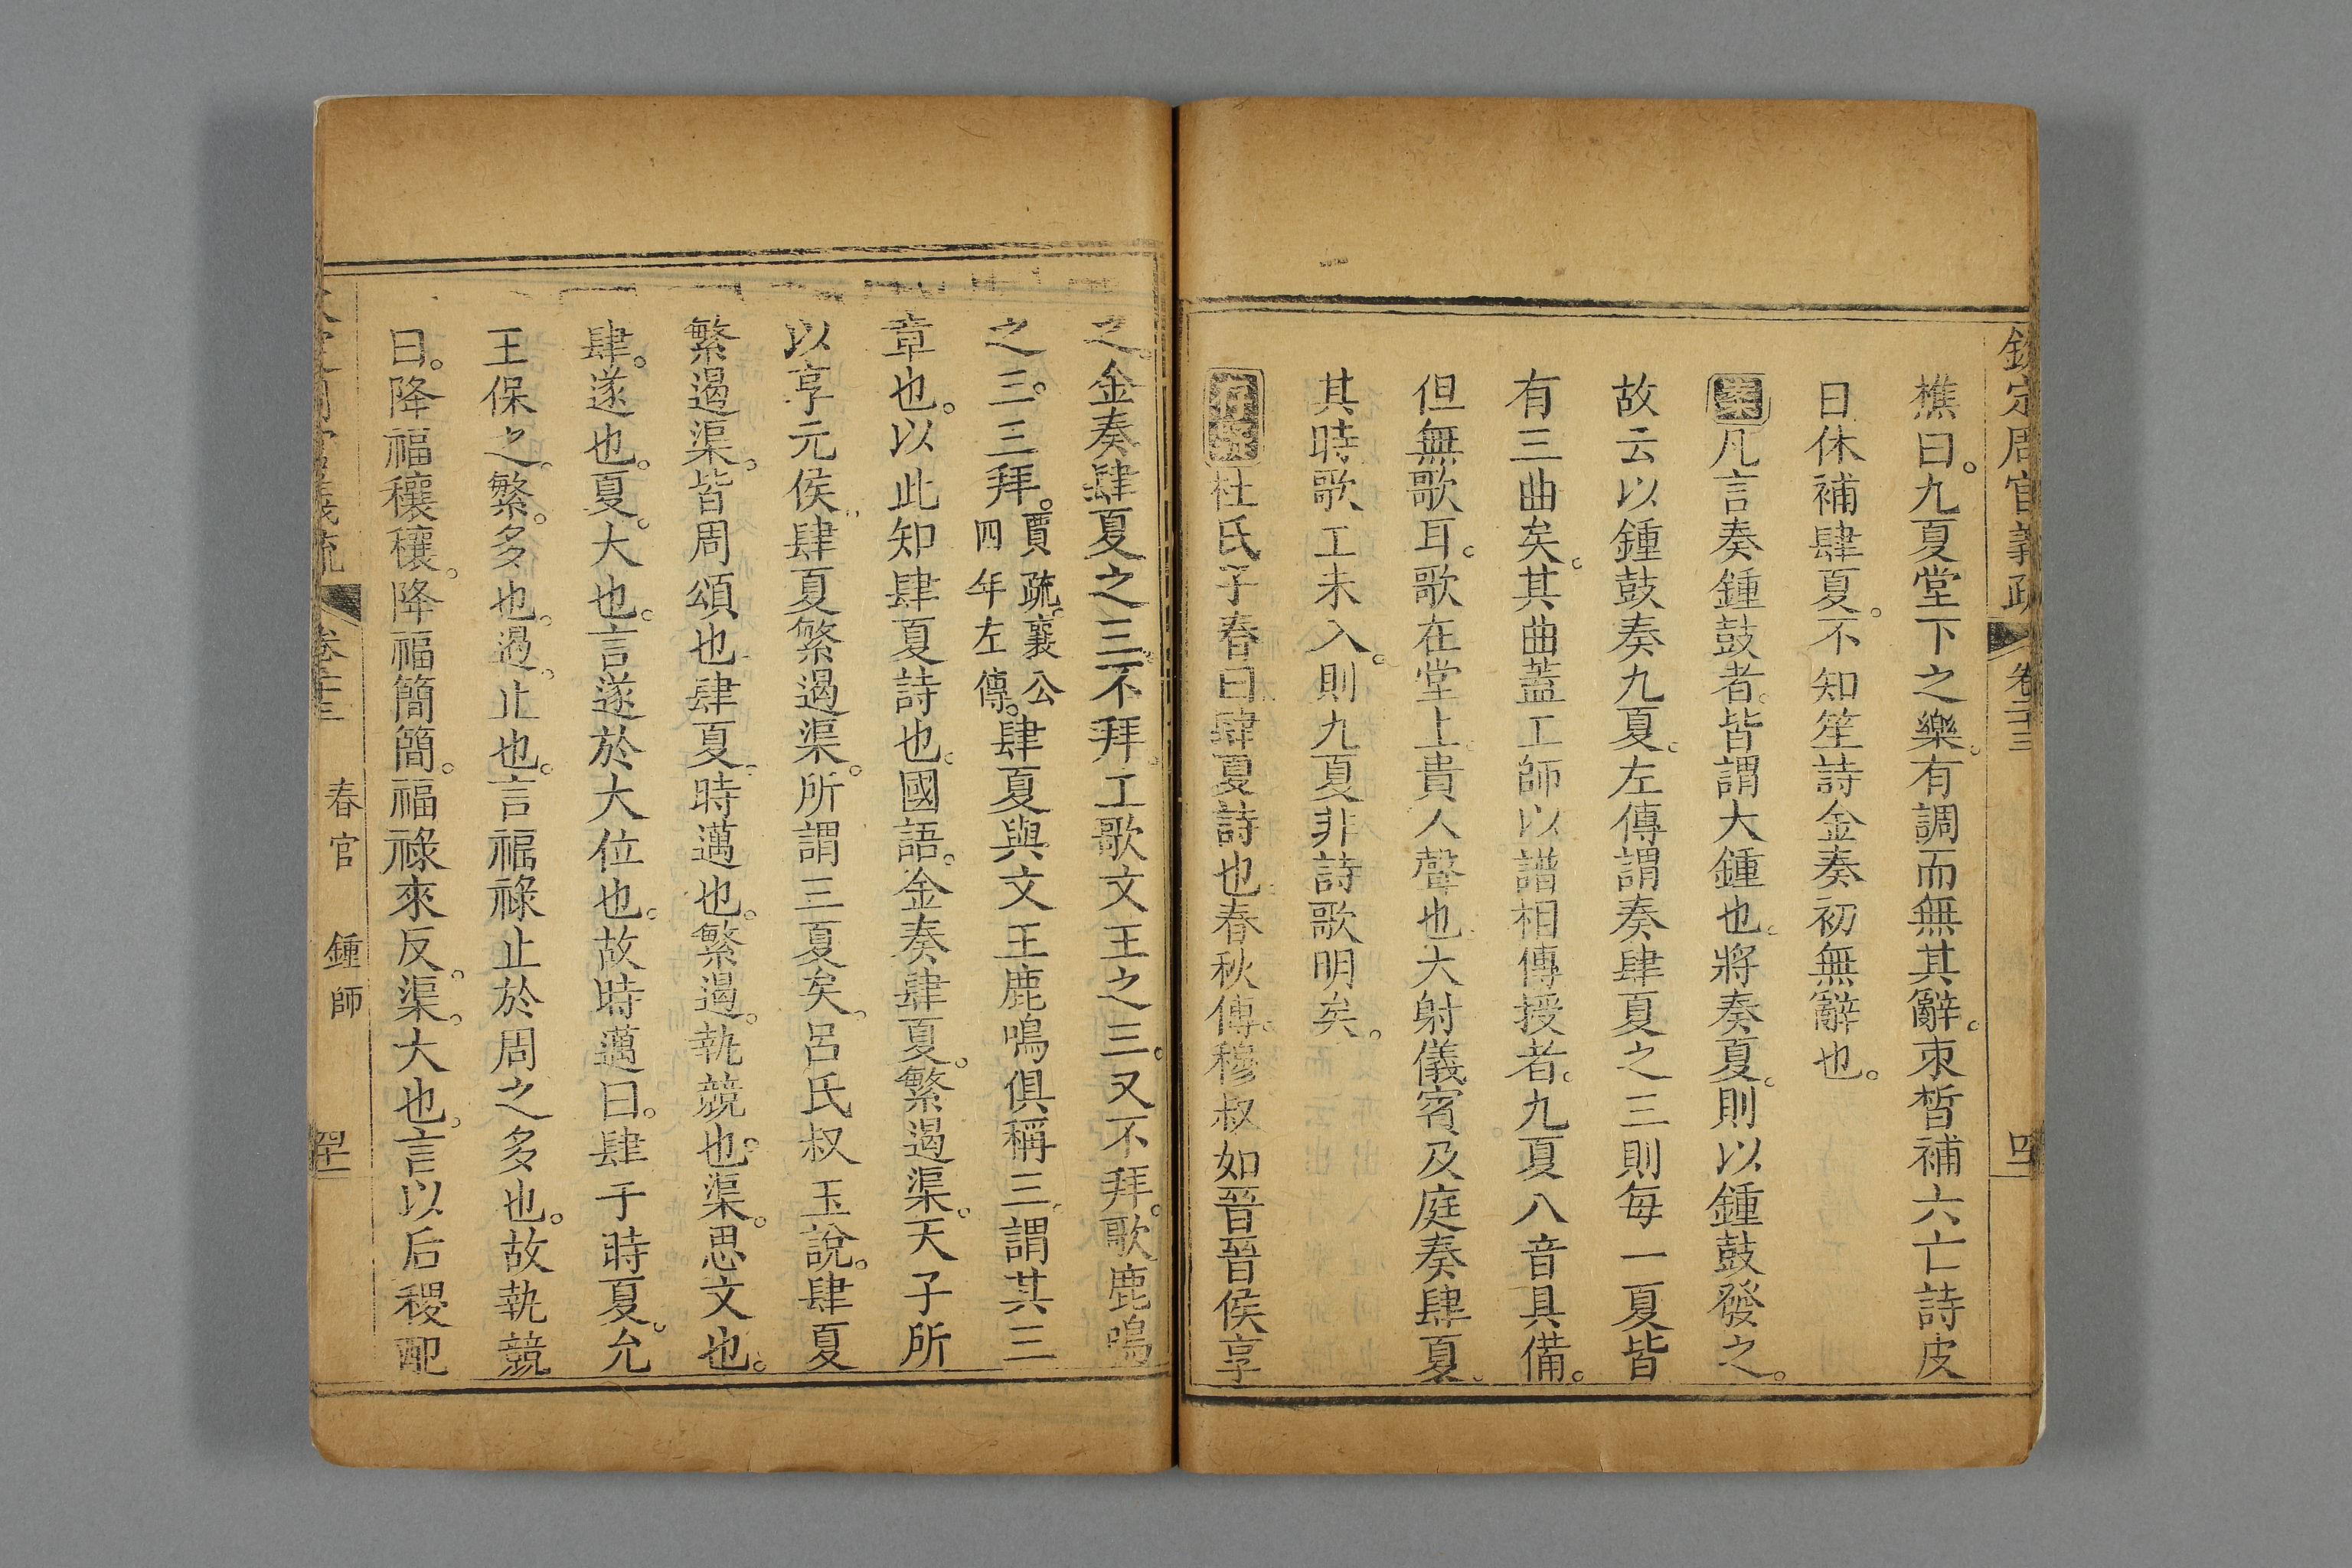 欽定周官義疏 卷二十三
樵曰。九夏堂下之樂。有調而無其辭。束晳補六亡詩皮
日休補肆夏。不知笙詩金奏初無辭也。
案凡言奏鍾鼓者。皆謂大鍾也。將奏夏。則以鍾鼓發之。
故云以鍾鼓奏九夏。左傳謂奏肆夏之三則每一夏皆
有三曲矣。其曲蓋工師以譜相傳授者。九夏八音具備。
但無歌耳。歌在堂上。貴人聲也。大射儀賓及庭奏肆夏。
其時歌工未入。則九夏非詩歌明矣。
杜氏子春曰肆夏詩也。春秋傳。穆叔如晉晉侯享
之。金奏肆夏之三。不拜。工歌文王之三。又不拜。歌鹿鳴
之三。三拜。賈疏。襄公四年左傳。肆夏與文王鹿鳴俱稱三。謂其三
章也。以此知肆夏詩也。國語。金奏肆夏。繁遏渠。天子所
以享元侯。肆夏繁遏渠。所謂三夏矣。呂氏叔玉說。肆夏
繁遏渠。皆周頌也。肆夏。時邁也。繁遏。執競也。渠。思文也。
肆。遂也。夏。大也。言遂於大位也。故時邁曰。肆于時夏。允
王保之。繁。多也。遏。止也。言福祿止於周之多也。故執競
曰。降福穰穰。降福簡簡。福祿來反。渠。大也。言以后稷配
卷二十三 春官 鍾師